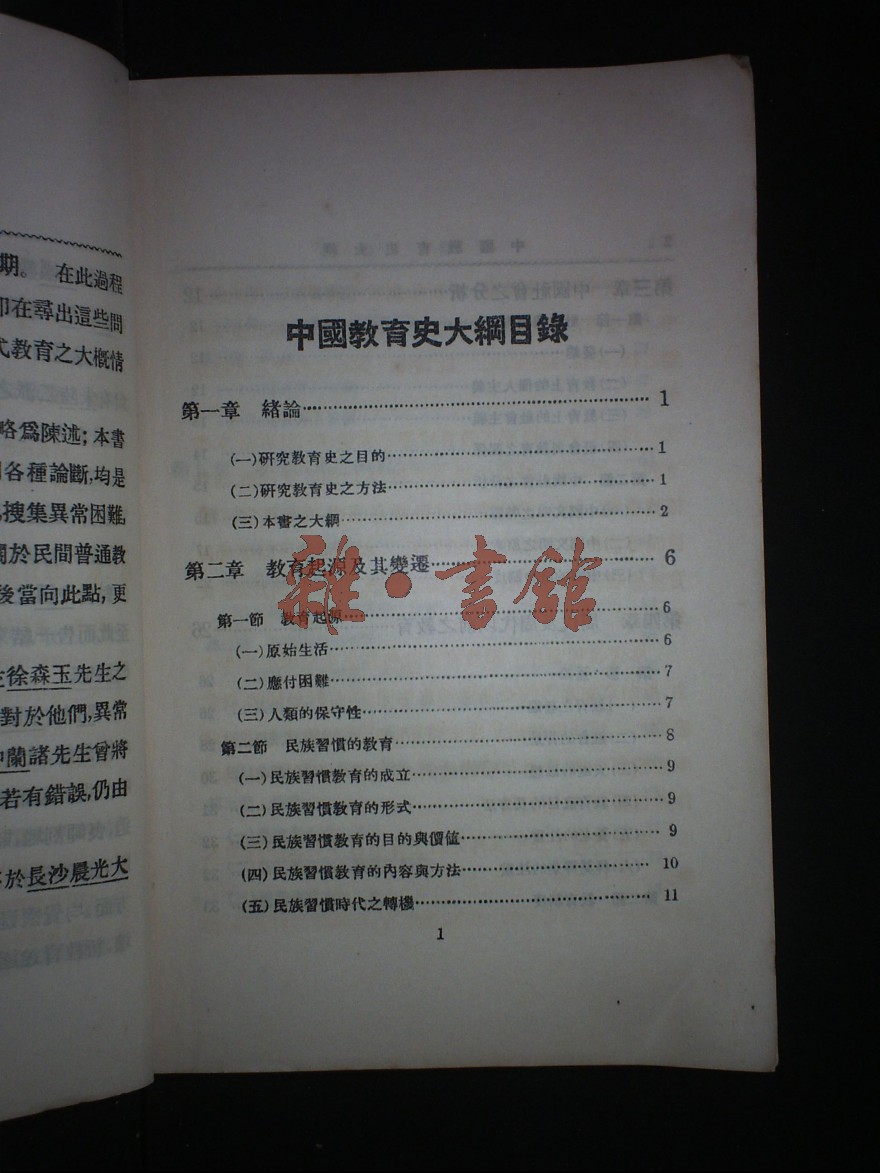 期。 在此過程
卽在尋出這些問
式教育之大槪情
略爲陳述;本書
各種論斷,均是
搜集異常困難,
關於民間普通教
後當向此點,更
徐森玉先生之
對於他們,異常
蘭諸先生曾將
若有錯誤,仍由
於長沙晨光大
中國教育史大綱目錄
第一章 緒論……1
(一)研究教育史之目的……1
(二)研究教育史之方法……1
(三)本書之大綱……2
第二章 教育起源及其變遷……6
第一節 教育起源……6
(一)原始生活……6
(二)應付困難……7
(三)人類的保守性……7
第二節 民族習慣的教育……8
(一)民族習慣教育的成立……9
(二)民族習慣教育的形式……9
(三)民族習慣教育的目的與價値……9
(四)民族習慣教育的內容與方法……10
(五)民族習慣時代之轉機……11
1
雜·書館